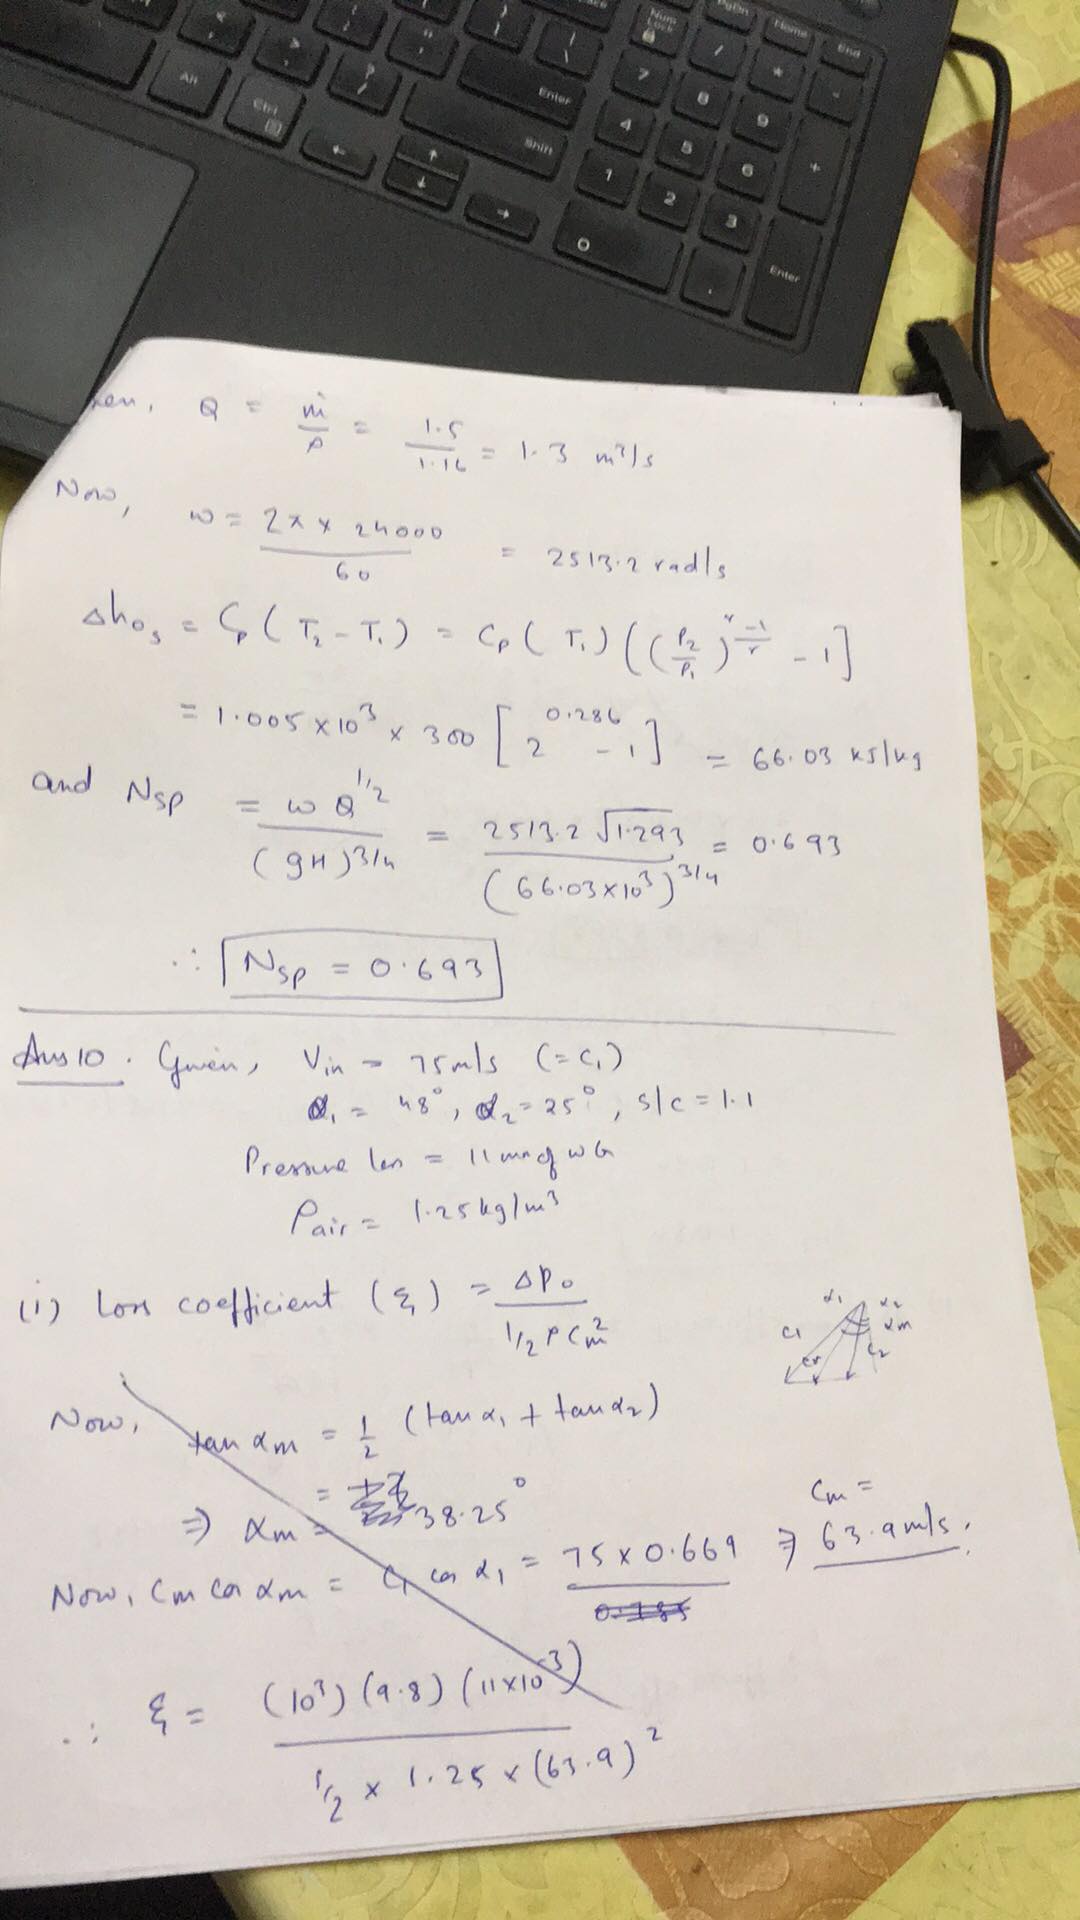 Alt
Ctrl
Enter
Shift
Num Lock
PgDn
Home
End
/
*
-
7
8
9
4
5
6
+
1
2
3
0
.
Enter
Q = ṁ/ρ = 1.5/1.16 = 1.3 m³/s
Now, ω = 2π × 24000/60 = 2513.2 rad/s
Δho_s = Cp (T₂ - T₁) = Cp (T₁) ((P₂/P₁)^(r-1/r) - 1]
= 1.005 × 10³ × 300 [2^0.286 - 1] = 66.03 kJ/kg
and Nsp = ω Q^1/2/(gH)^3/4 = 2513.2 √1.293/(66.03×10³)^3/4 = 0.693
∴ Nsp = 0.693
Ans 10. Given, Vin = 75 m/s (= C₁)
α₁ = 48°, α₂ = 25°, s/c = 1.1
Pressure loss = 11 mm of WG
ρair = 1.25 kg/m³
(i) Loss coefficient (ξ) = ΔP₀/½ ρ Cm²
α₁ α₂
αm
C₁ C₂
Now, tan αm = 1/2 (tan α₁ + tan α₂)
=
⇒ αm = 38.25°
Now, Cm cos αm = C₁ cos α₁ = 75 × 0.669 ⇒ Cm = 63.9 m/s.
∴ ξ = (10³) (9.8) (11×10⁻³)/½ × 1.25 × (63.9)²